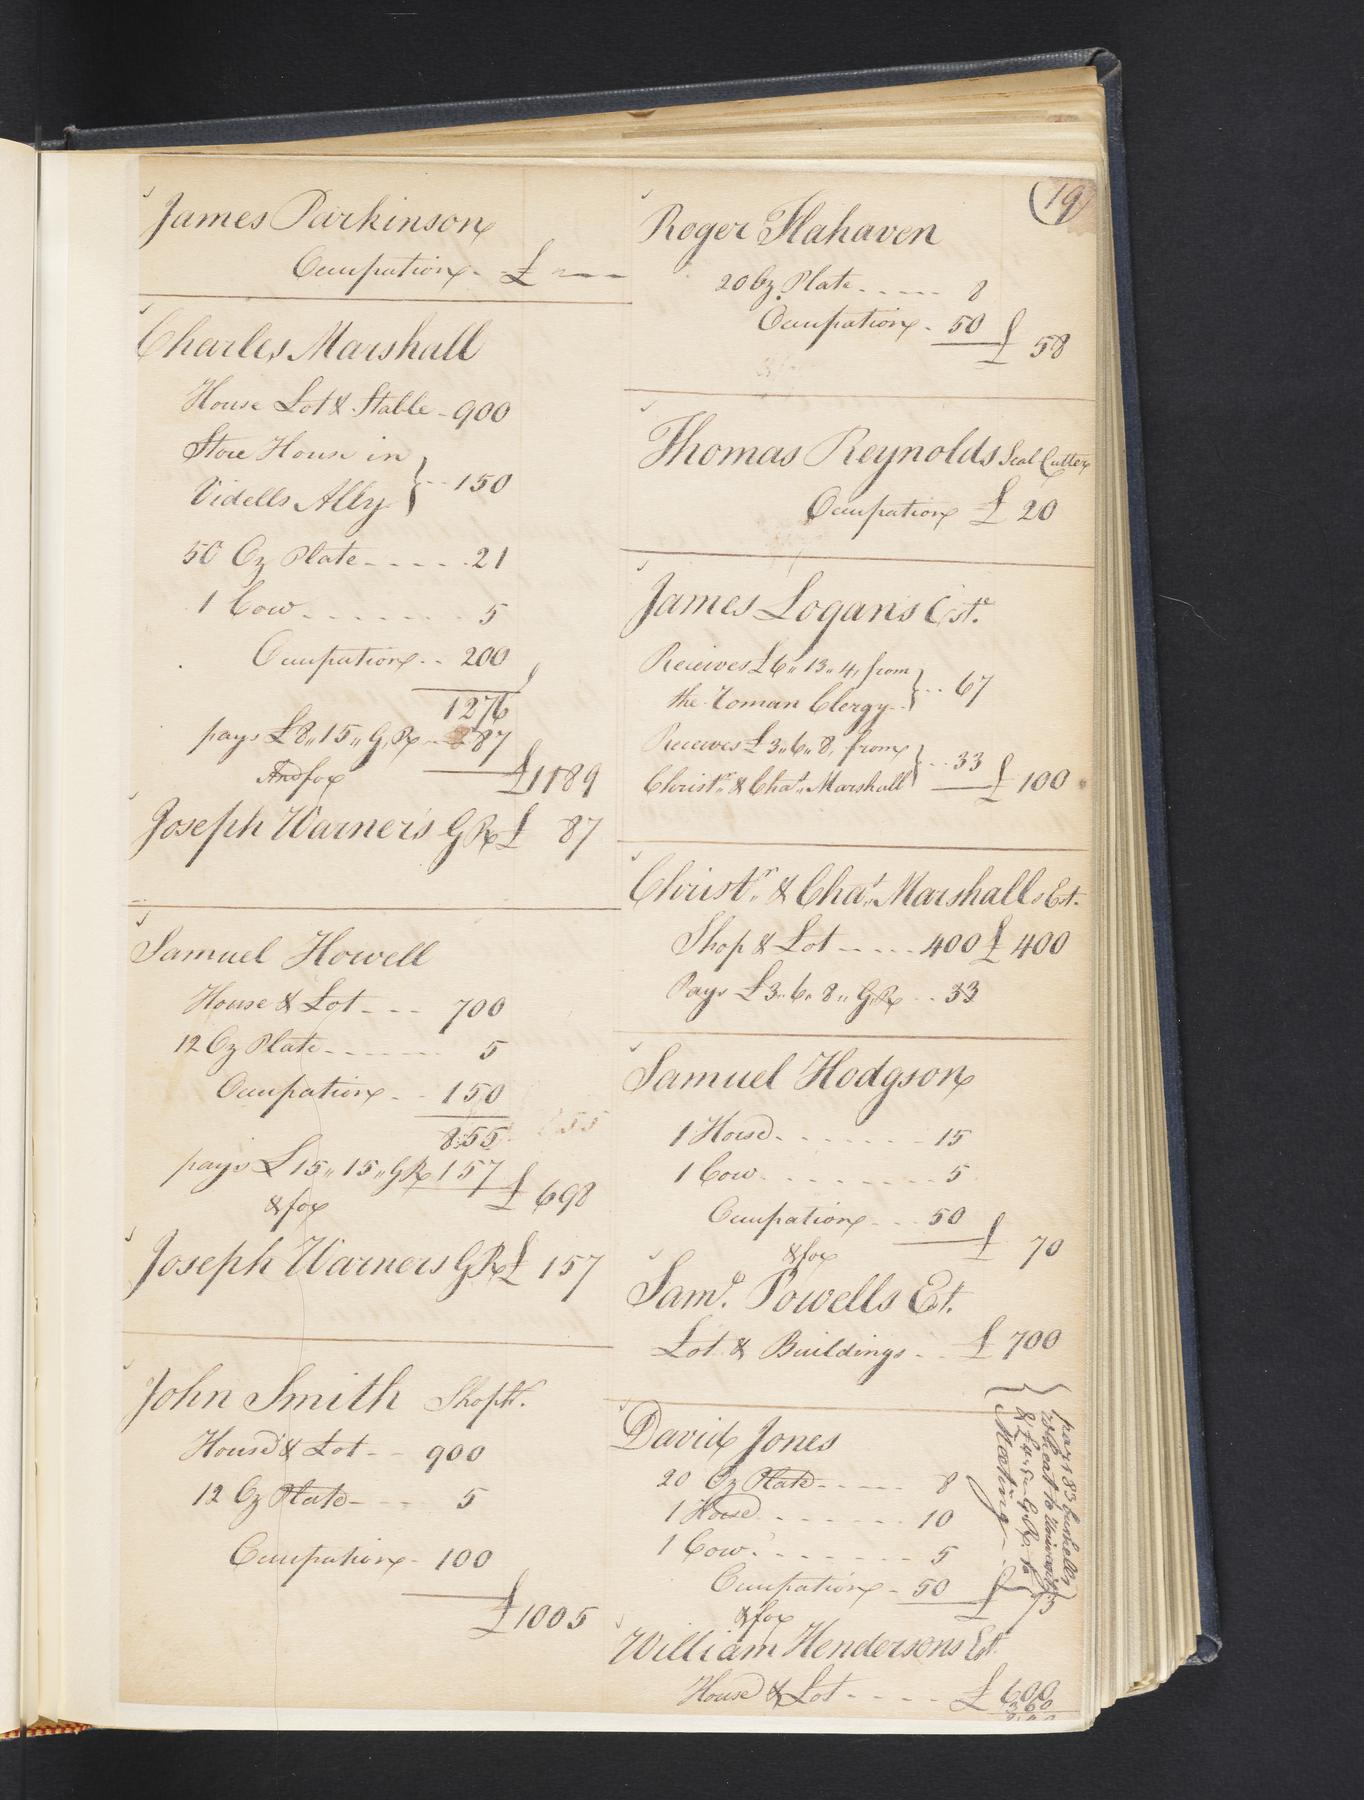 James Parkinson
Occupation - £ ---
Charles Marshall
House Lot & Stable - 900
Store House in
Vidells Ally } -- 150
50 Oz Plate ----- 21
1 Cow ------- 5
Occupation -- 200
1276
pays £8,,15,, G,R -- 87
And for £1189
Joseph Warners GR £ 87
Samuel Howell
House & Lot --- 700
12 Oz Plate ------ 5
Occupation -- 150
855
pays £15,,15,, GR 157
& for £698
Joseph Warners GR £ 157
John Smith Shopk.
House & Lot -- 900
12 Oz Plate --- 5
Occupation - 100
£1005
(19)
Roger Flahaven
20 Oz Plate ----- 8
Occupation - 50 £ 58
Thomas Reynolds Seal Cutter
Occupation £ 20
James Logans Estе.
Receives £6,,13,,4, from
the Roman Clergy -- } -- 67
Receives £3,,6,,8, from
Christr. & Chas. Marshall } -- 33 £ 100
Christr. & Chas. Marshalls Est.
Shop & Lot ----- 400 £ 400
Pays £3,,6,,8,, G,R -- 33
Samuel Hodgson
1 Horse ------- 15
1 Cow --------- 5
Occupation --- 50 £ 70
& for
Saml. Powells Est.
Lot & Buildings -- £ 700
pays 183 bushells
Wheat to University
& £4,,5,, G,R, to
Meeting
David Jones
20 Oz Plate ----- 8
1 Horse ------- 10
1 Cow ------- 5
Occupation - 50 £
& for
William Hendersons Est.
House & Lot ---- £ 600
360